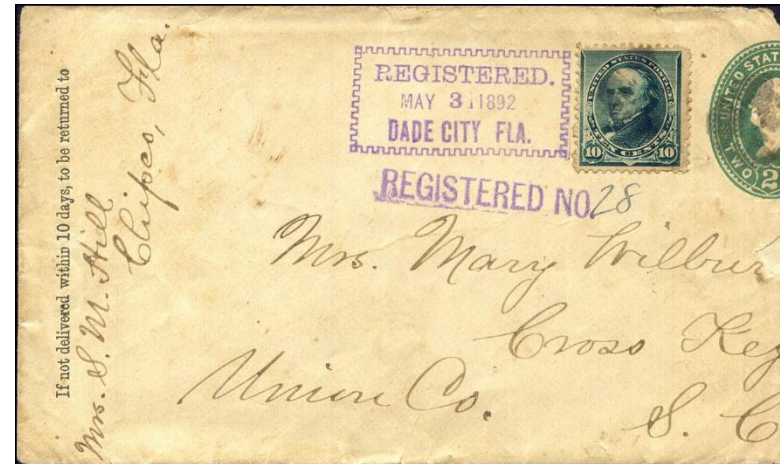 If not delivered within 10 days, to be returned to
Mrs. S. M. Hill
Chipco, Fla.
REGISTERED.
MAY 31 1892
DADE CITY FLA.
REGISTERED NO 28
UNITED STATES POSTAGE
TEN CENTS
10 10
UNITED STAT
TWO
2
Mrs. Mary Wilbur
Cross Key
Union Co.
S. C